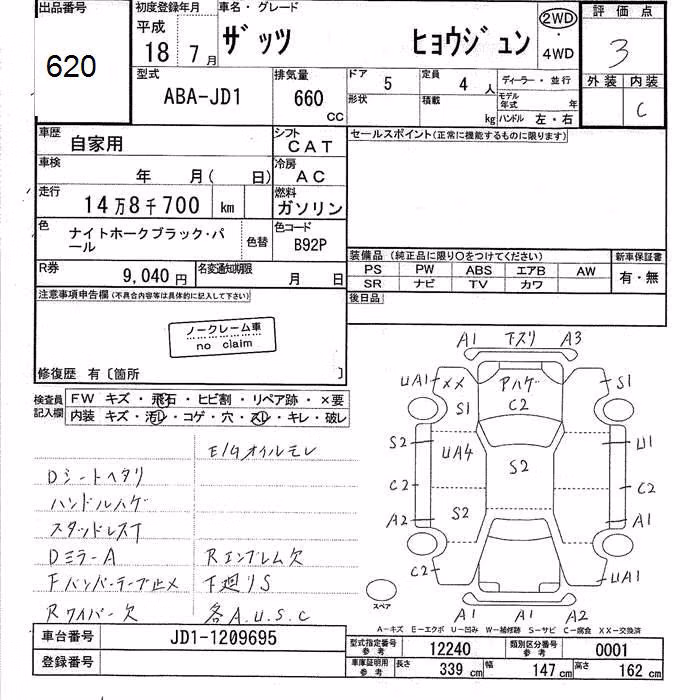 出品番号
620
初度登録年月
平成
18 7月
車名・グレード
ザッツ ヒョウジュン
2WD
・
4WD
評価点
3
外装 内装
C
型式
ABA-JD1
排気量
660
CC
ドア 5
定員 4 人
ディーラー・並行
形状
積載 kg
モデル年式 年
ハンドル 左・右
車歴
自家用
シフト
CAT
セールスポイント(正常に機能するものに限ります)
車検
年 月( 日)
冷房
AC
走行
14万8千700 km
燃料
ガソリン
色
ナイトホークブラック・パ
ール
色替
色コード
B92P
装備品(純正品に限り○をつけてください)
新車保証書
PS PW ABS エアB AW
SR ナビ TV カワ
有・無
R券
9,040円
名変通知期限
月 日
後日品
注意事項申告欄(不具合内容等は具体的に記入して下さい)
ノークレーム車
no claim
修復歴 有〔箇所 〕
検査員
記入欄
FW キズ・飛石・ヒビ割・リペア跡・×要
内装 キズ・汚レ・コゲ・穴・スレ・キレ・破レ
E/Gオイルモレ
Dシートヘタリ
ハンドルハゲ
スタッドレスT
DミラーA
Rエンブレム欠
Fバンパーテープ止メ
下廻りS
Rワイパー欠
各A.U.S.C
A1 下スリ A3
UA1 XX
Pハゲ
C2
S1
S1
S2
UA4
S2
U1
C2
C2
A2
S2
A1
C2
UA1
スペア
A1 A1 A2
A-キズ E-エクボ U-凹み W-補修跡 S-サビ C-腐食 XX-交換済
車台番号
JD1-1209695
登録番号
型式指定番号
参考
12240
類別区分番号
参考
0001
車庫証明用
参考
長さ 339 cm
幅 147 cm
高さ 162 cm